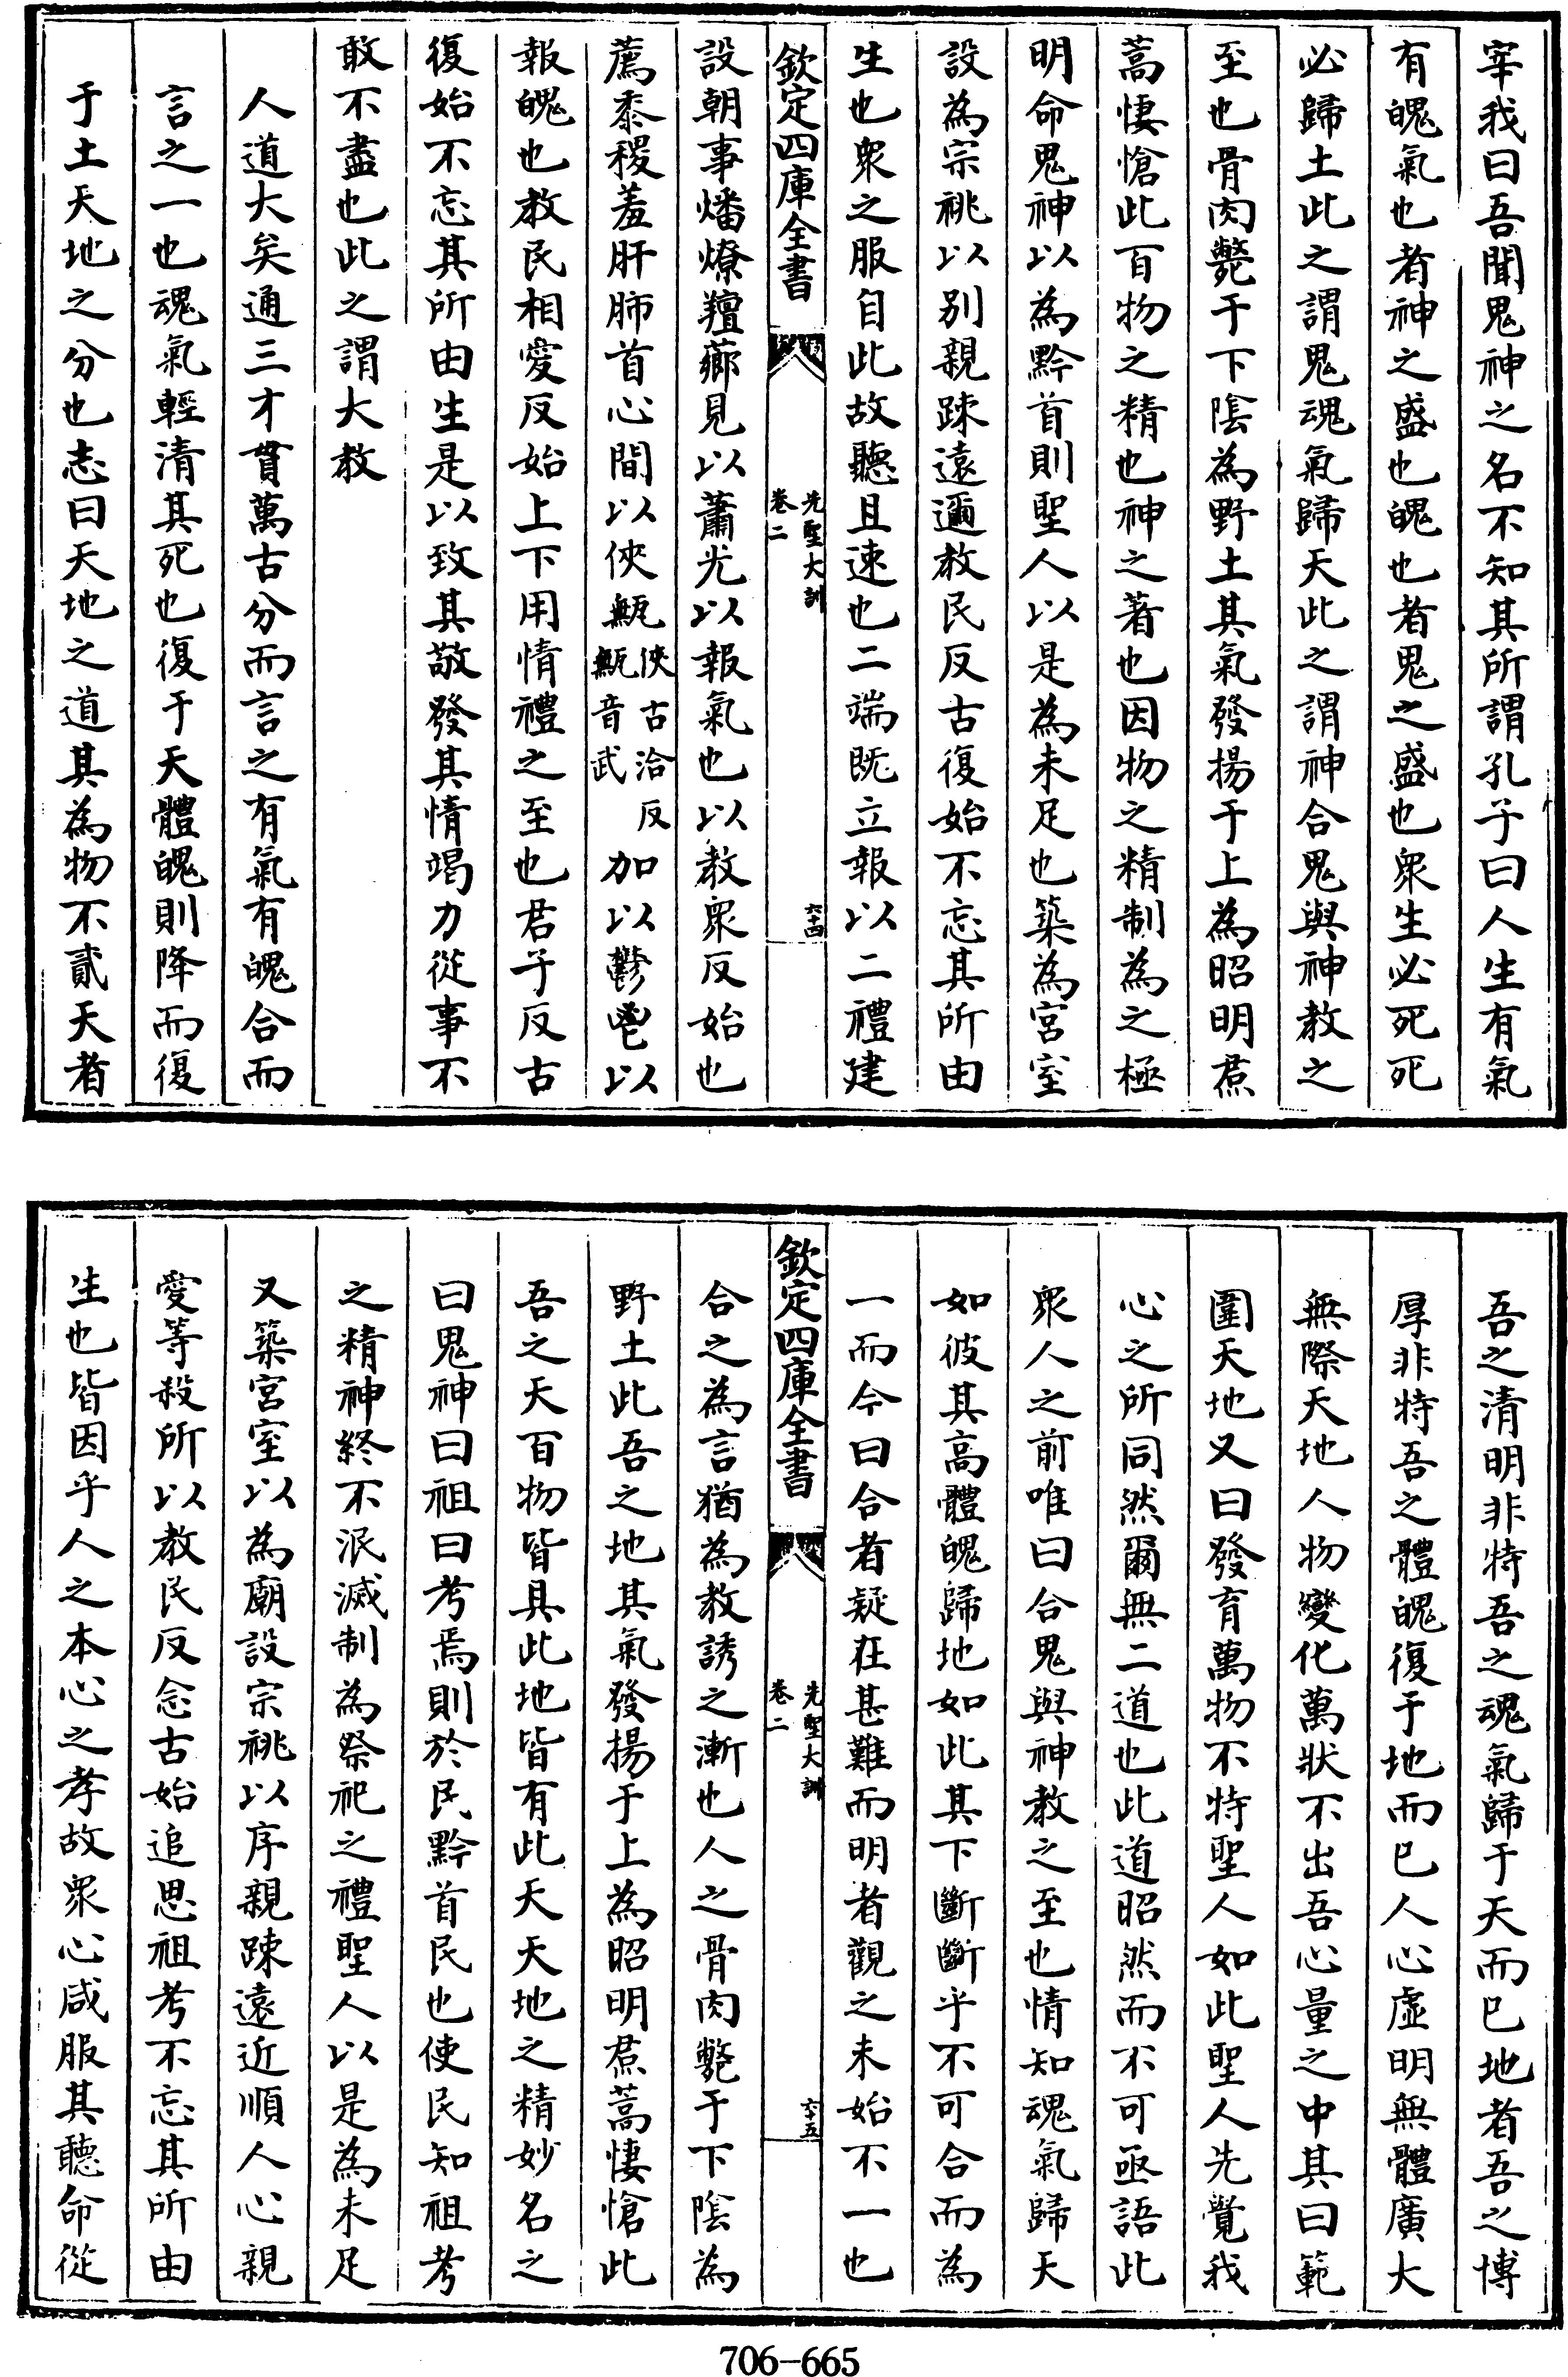 宰我曰吾聞鬼神之名不知其所謂孔子曰人生有氣
有魄氣也者神之盛也魄也者鬼之盛也衆生必死死
必歸土此之謂鬼魂氣歸天此之謂神合鬼與神教之
至也骨肉斃于下陰為野土其氣發揚于上為昭明焄
蒿悽愴此百物之精也神之著也因物之精制為之極
明命鬼神以為黔首則聖人以是為未足也築為宮室
設為宗祧以別親踈遠邇教民反古復始不忘其所由
生也衆之服自此故聽且速也二端既立報以二禮建
欽定四庫全書
先聖大訓
卷二
六十四
設朝事燔燎羶薌見以蕭光以報氣也以教衆反始也
薦黍稷羞肝肺首心間以俠甒俠古洽反甒音武加以鬱鬯以
報魄也教民相愛反始上下用情禮之至也君子反古
復始不忘其所由生是以致其敬發其情竭力從事不
敢不盡也此之謂大教
人道大矣通三才貫萬古分而言之有氣有魄合而
言之一也魂氣輕清其死也復于天體魄則降而復
于土天地之分也志曰天地之道其為物不貳天者
吾之清明非特吾之魂氣歸于天而已地者吾之博
厚非特吾之體魄復于地而已人心虛明無體廣大
無際天地人物變化萬狀不出吾心量之中其曰範
圍天地又曰發育萬物不特聖人如此聖人先覺我
心之所同然爾無二道也此道昭然而不可亟語此
衆人之前唯曰合鬼與神教之至也情知魂氣歸天
如彼其高體魄歸地如此其下斷斷乎不可合而為
一而今曰合者疑在甚難而明者觀之未始不一也
欽定四庫全書
先聖大訓
卷二
六十五
合之為言猶為教誘之漸也人之骨肉斃于下陰為
野土此吾之地其氣發揚于上為昭明焄蒿悽愴此
吾之天百物皆具此地皆有此天天地之精妙名之
曰鬼神曰祖曰考焉則於民黔首民也使民知祖考
之精神終不泯滅制為祭祀之禮聖人以是為未足
又築宮室以為廟設宗祧以序親踈遠近順人心親
愛等殺所以教民反念古始追思祖考不忘其所由
生也皆因乎人之本心之孝故衆心咸服其聽命從
706-665